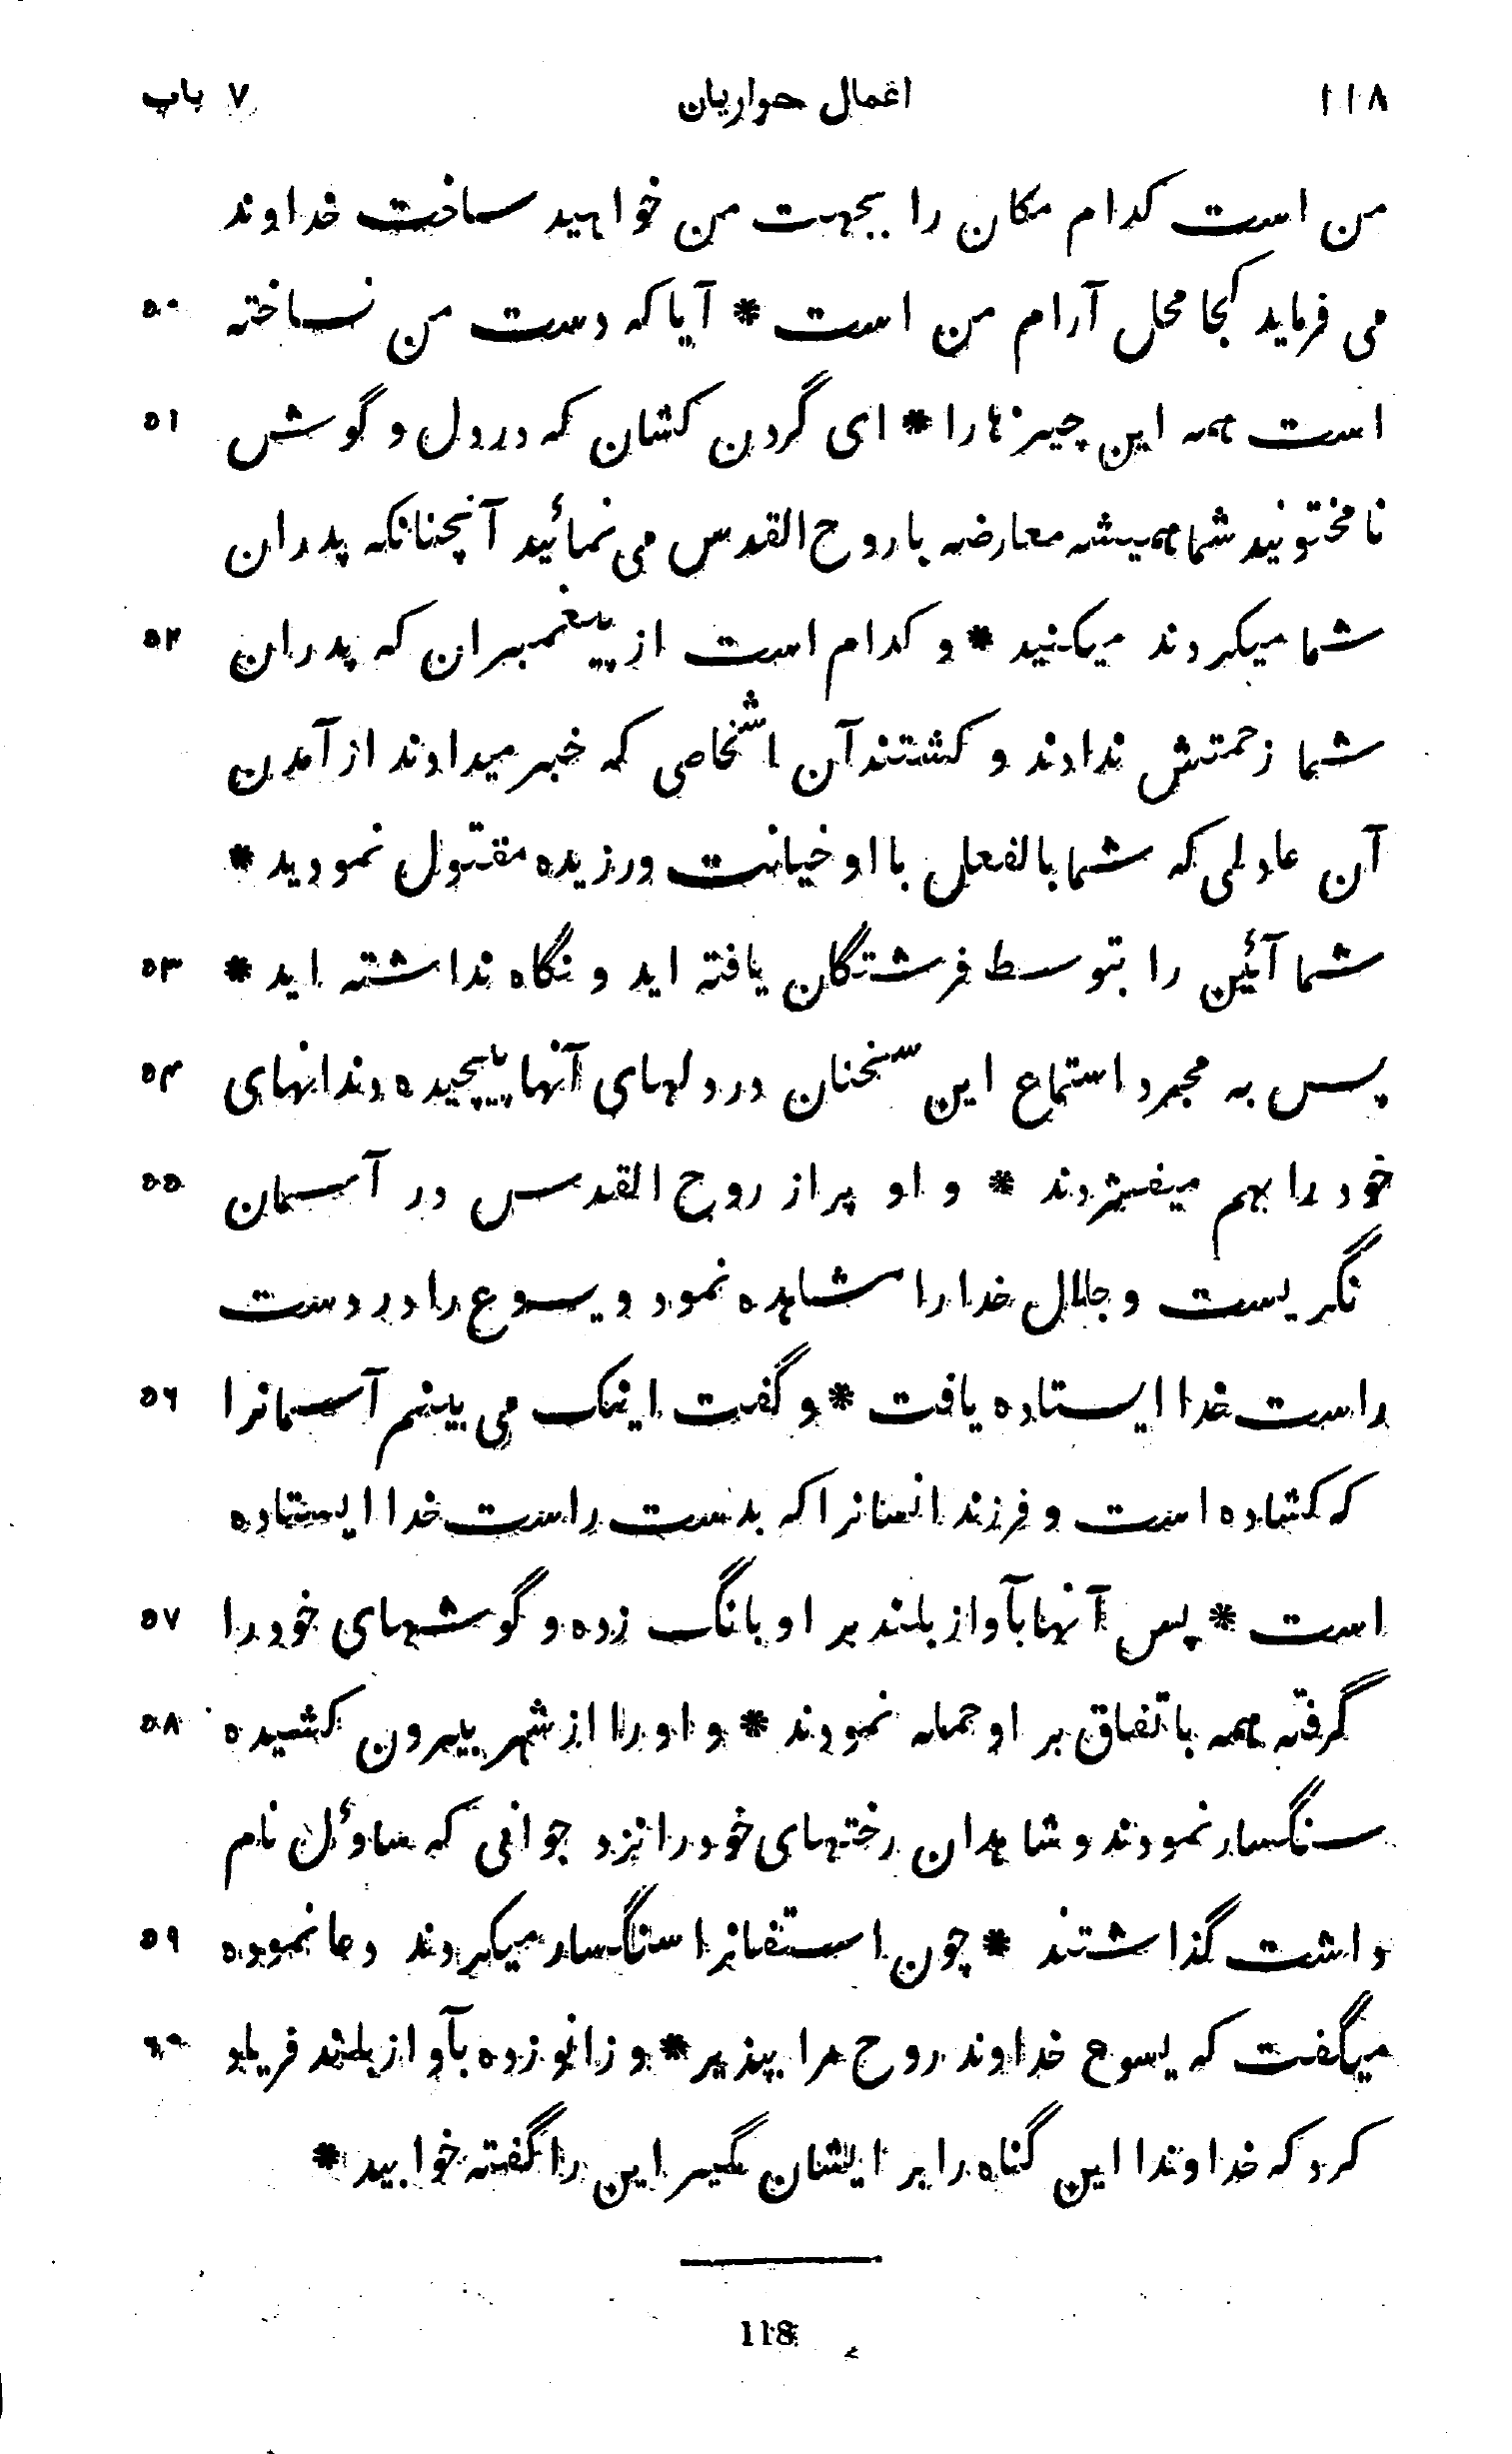 ۱۱۸ اعمال حواریان ۷ باب
من است کدام مکان را بجهت من خواهید ساخت خداوند
می فرماید کجا محل آرام من است * آیا که دست من نساخته ۵۰
است همه این چیزها را * ای گردن کشان که در دل و گوش ۵۱
نامختونید شما همیشه معارضه با روح القدس می نمائید آنچنانکه پدران
شما میکردند میکنید * و کدام است از پیغمبران که پدران ۵۲
شما زحمتش ندادند و کشتند آن اشخاصی که خبر میدادند از آمدن
آن عادلی که شما بالفعل با او خیانت ورزیده مقتول نمودید *
شما آئین را بتوسط فرشتگان یافته اید و نگاه نداشته اید * ۵۳
پس به مجرد استماع این سخنان در دلهای آنها پیچیده دندانهای ۵۴
خود را بهم میفشردند * و او پر از روح القدس در آسمان ۵۵
نگریست و جلال خدا را مشاهده نمود و یسوع را در دست
راست خدا ایستاده یافت * و گفت اینک می بینم آسمانرا ۵۶
که کشاده است و فرزند انسانرا که بدست راست خدا ایستاده
است * پس آنها بآواز بلند بر او بانگ زده و گوشهای خود را ۵۷
گرفته همه باتفاق بر او حمله نمودند * و او را از شهر بیرون کشیده ۵۸
سنگسار نمودند و شاهدان رختهای خود را نزد جوانی که ساوئل نام
داشت گذاشتند * چون استفانرا سنگسار میکردند دعا نموده ۵۹
میگفت که یسوع خداوند روح مرا بپذیر * و زانو زده بآواز بلند فریاد ۶۰
کرد که خداوندا این گناه را بر ایشان مگیر این را گفته خوابید *
118